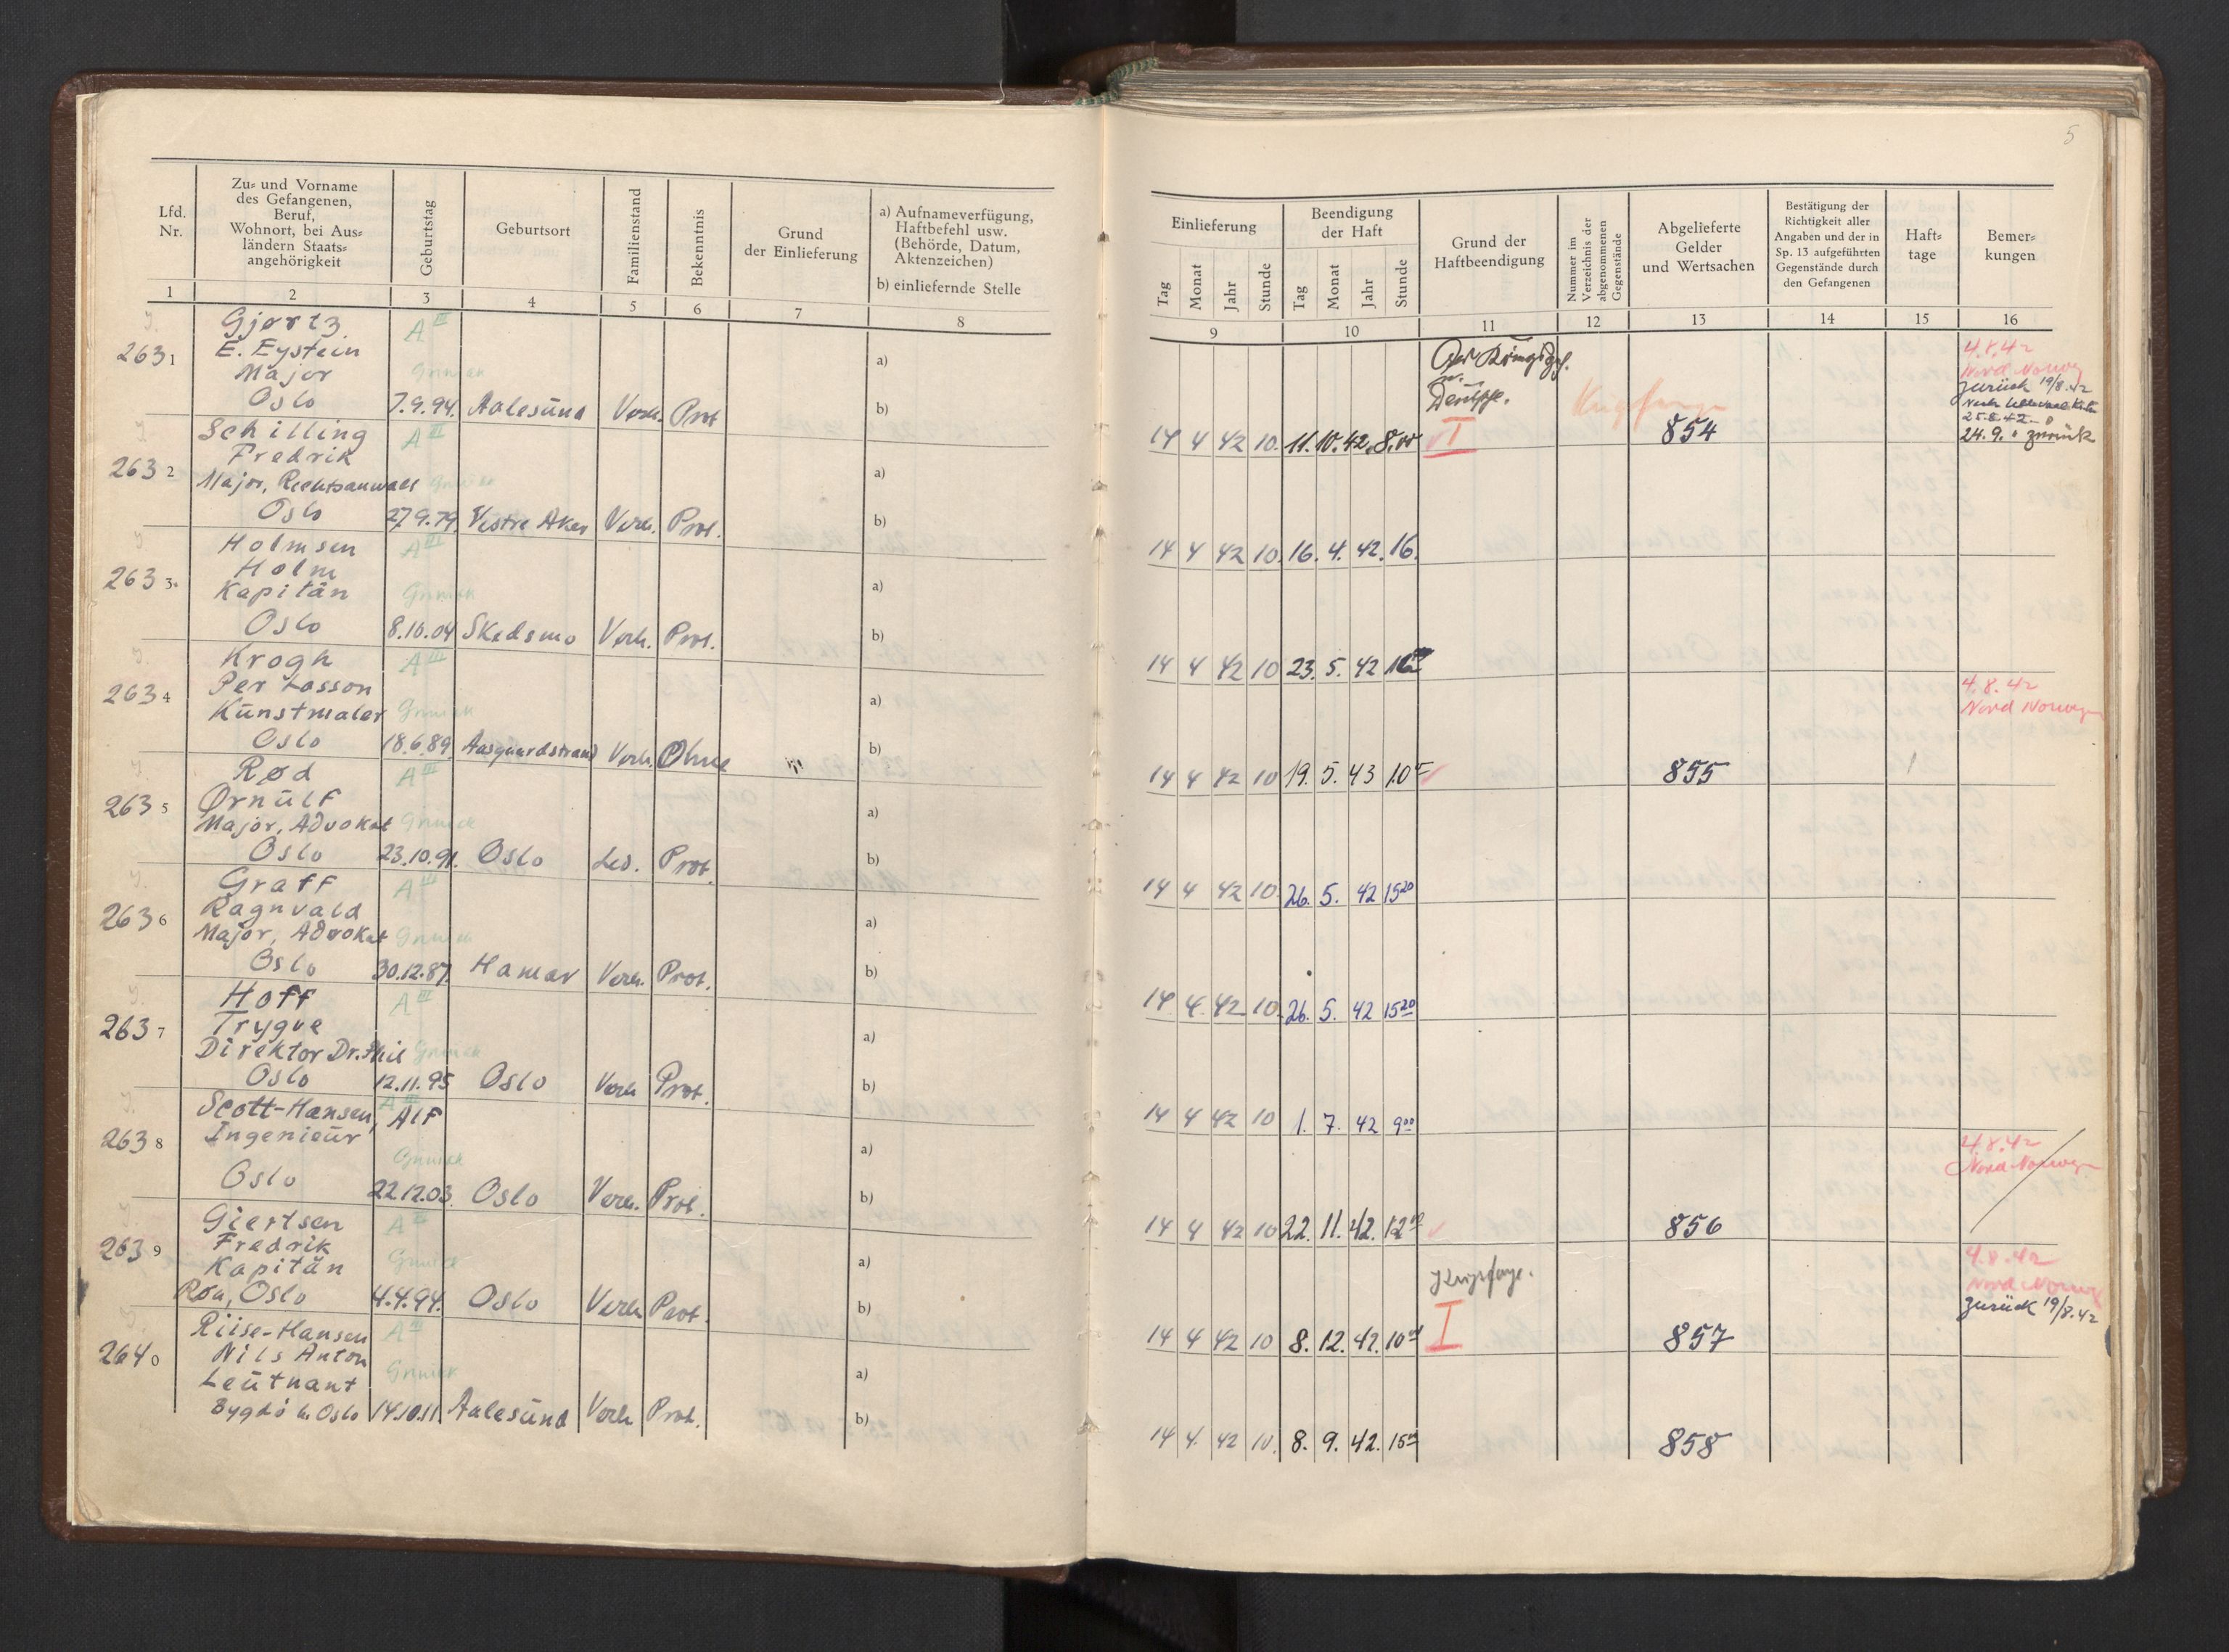 5
Lfd. Nr.
Zu- und Vorname des Gefangenen, Beruf, Wohnort, bei Ausländern Staatsangehörigkeit
Geburtstag
Geburtsort
Familienstand
Bekenntnis
Grund der Einlieferung
a) Aufnameverfügung, Haftbefehl usw. (Behörde, Datum, Aktenzeichen)
b) einliefernde Stelle
Einlieferung
Tag Monat Jahr Stunde
Beendigung der Haft
Tag Monat Jahr Stunde
Grund der Haftbeendigung
Nummer im Verzeichnis der abgenommenen Gegenstände
Abgelieferte Gelder und Wertsachen
Bestätigung der Richtigkeit aller Angaben und der in Sp. 13 aufgeführten Gegenstände durch den Gefangenen
Hafttage
Bemerkungen
1 2 3 4 5 6 7 8 9 10 11 12 13 14 15 16
2631
Gjørtz
E. Eystein
Major
Oslo 7.9.94. Aalesund Verh. Prot
A III
Grimick
a)
b)
14 4 42 10. 11.10.42. 8.00
I
854
4.8.42
Nord Norweg
zurück 19/8.42
25.8.42
24.9. " zurück
2632
Schilling
Fredrik
Major, Rechtsanwalt
Oslo 27.9.79. Vestre Aker Verh. Prot.
A III
Grimick
a)
b)
14 4 42 10. 16. 4. 42. 16.
2633.
Holmsen
Holm
Kapitän
Oslo 8.10.04 Skedsmo Verh. Prot.
A III
Grimick
a)
b)
14 4 42 10 23. 5. 42
2634
Krogh
Per Lasson
Kunstmaler
Oslo 18.6.89. Aasgaardstrand Verh. Ohne
A III
Grimick
a)
b)
14 4 42 10 19. 5. 43 10
855
4.8.42
Nord Norweg
2635
Rød
Ørnulf
Major, Advokat
Oslo 23.10.91. Oslo Led. Prot.
A III
Grimick
a)
b)
14 4 42 10. 26. 5. 42 15 20
2636
Graff
Ragnvald
Major, Advokat
Oslo 30.12.87. Hamar Verh. Prot.
A III
Grimick
a)
b)
14 4. 42 10. 26. 5. 42 15 20
2637
Hoff
Trygve
Direktor Dr. Phil
Oslo 12.11.95 Oslo Verh Prot.
A III
Grimick
a)
b)
14 4 42 10 1. 7. 42 9 00
2638
Scott-Hansen, Alf
Ingenieur
Oslo 22.12.03. Oslo Verh. Prot.
A III
Grimick
a)
b)
14 4 42 10 22. 11. 42. 12 00
856
4.8.42
Nord-Norweg
2639
Giertsen
Fredrik
Kapitän
Röa, Oslo 4.4.94. Oslo Verh Prot.
A III
Grimick
a)
b)
14 4 42 10 8. 12. 42. 10
I
857
4.8.42
Nord Norweg
zurück 19/8.42
2640
Riise-Hansen
Nils Anton
Leutnant
Bygdö b. Oslo 14.10.11 Aalesund Verh Prot.
A III
Grimick
a)
b)
14 4 42 10. 8. 9. 42. 15
858